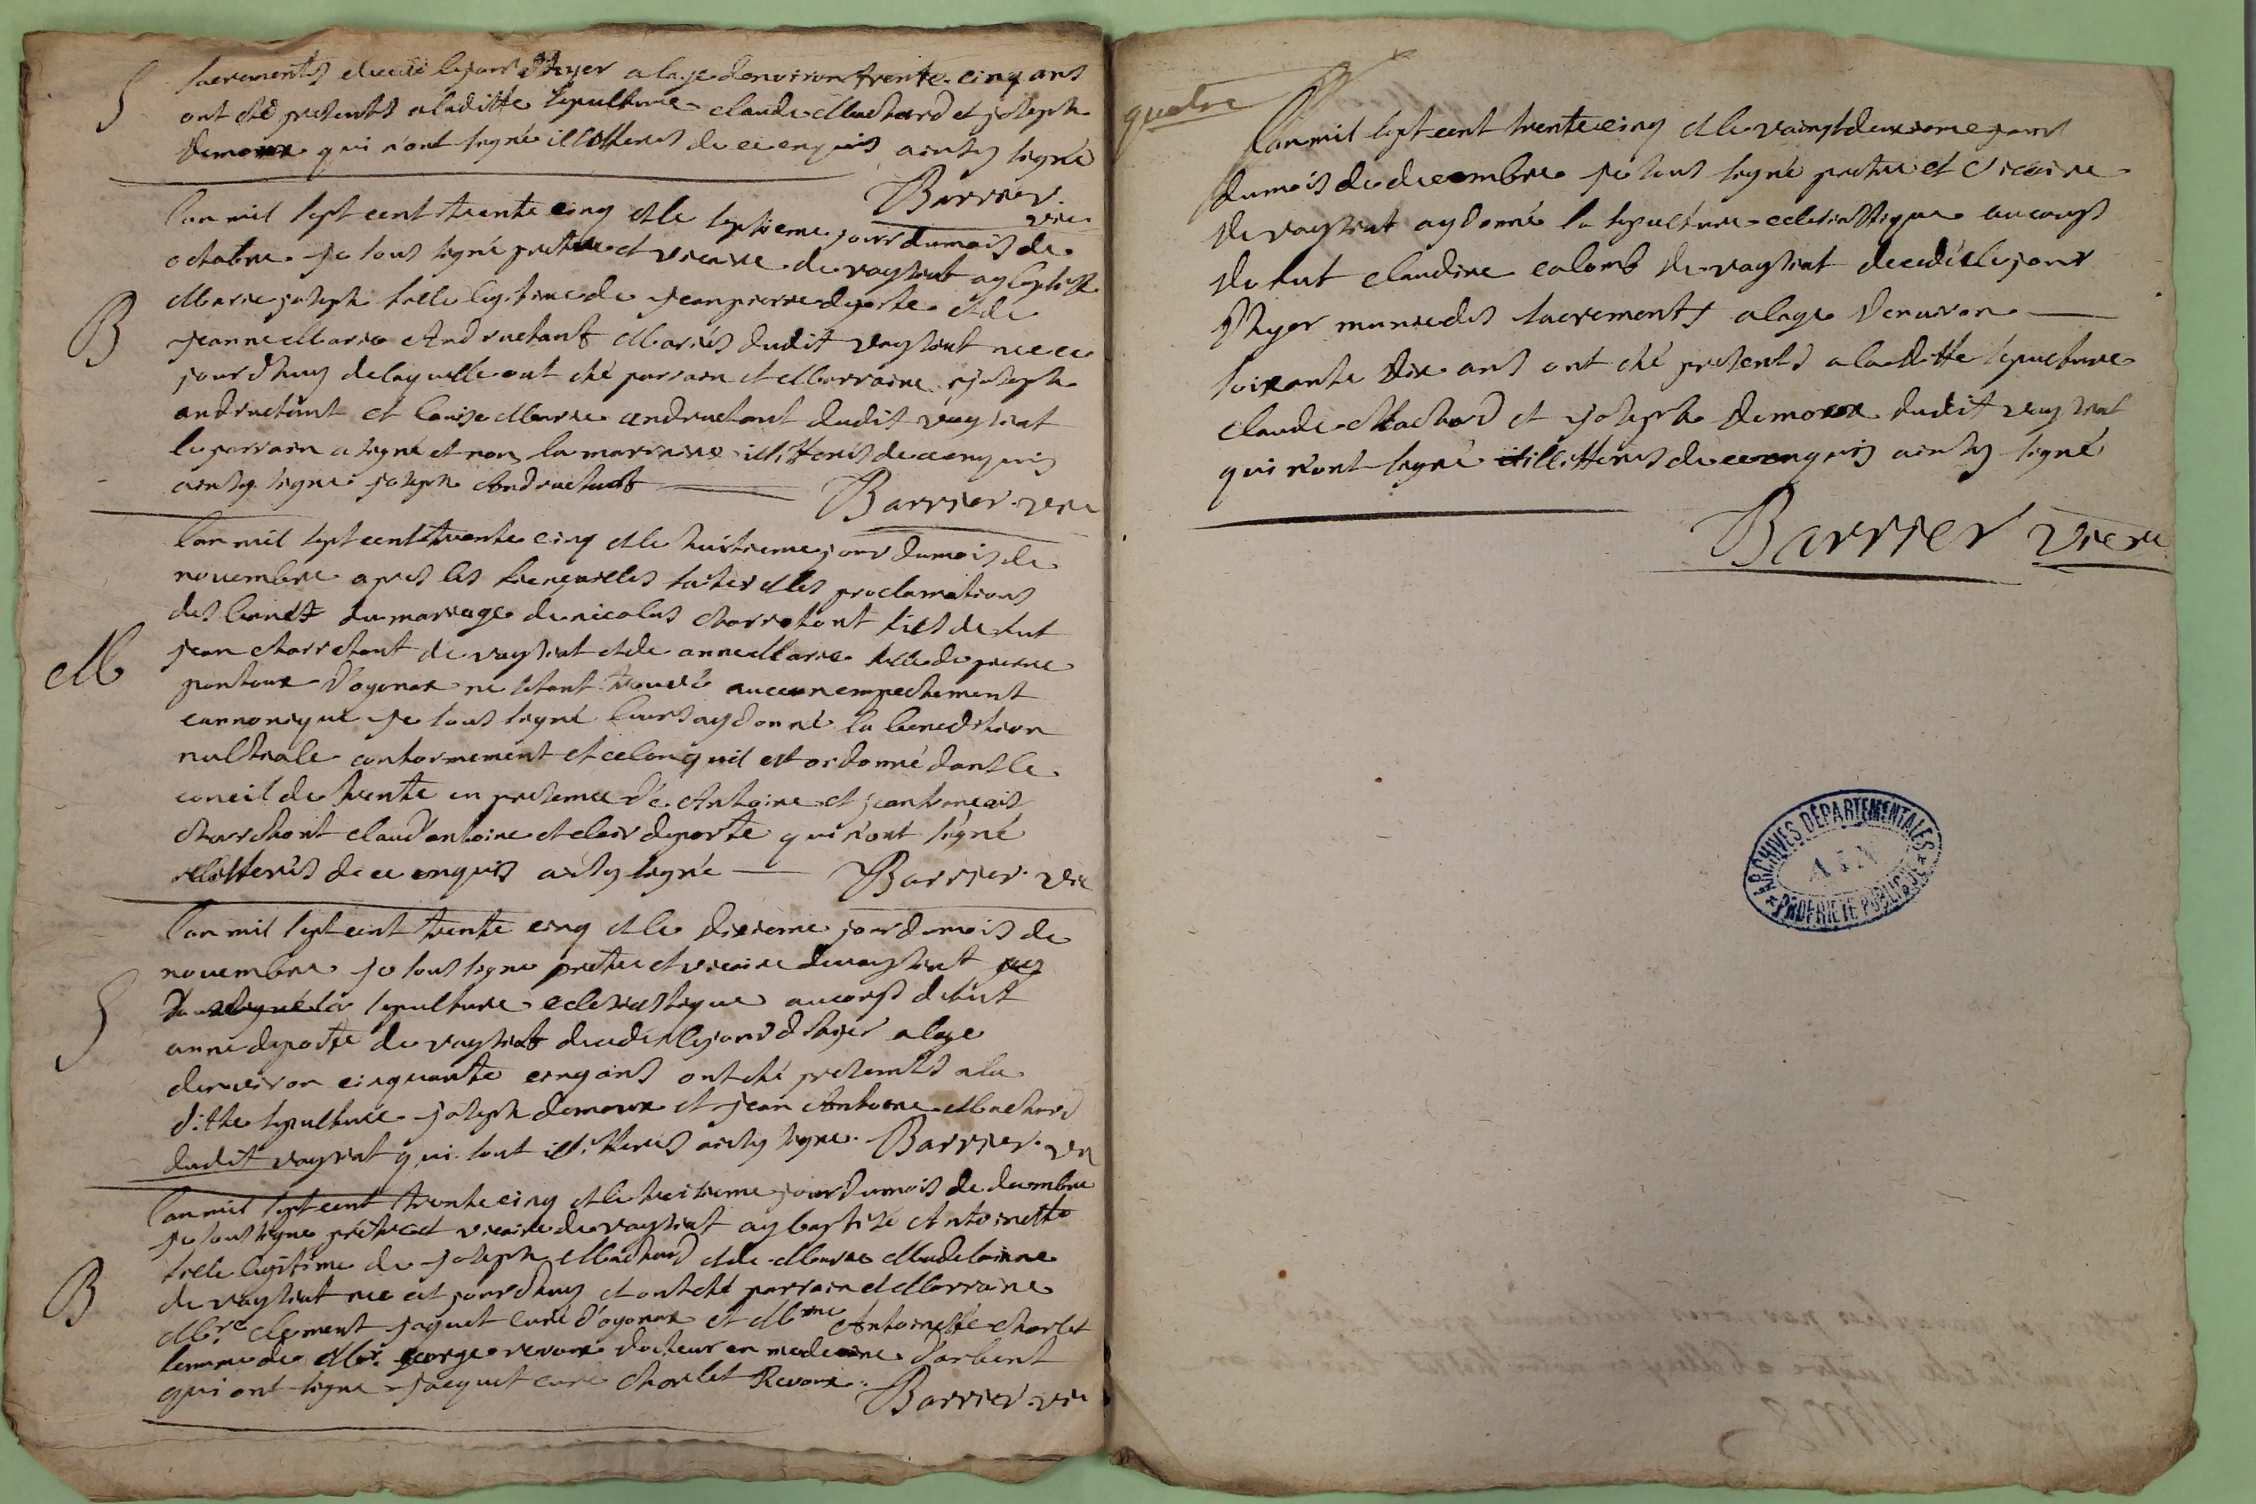 S
sacrements decedé le jour d'hyer a lage denviron trente cinq ans
ont eté presents a laditte sepulture claude Machard et joseph
demoux qui n'ont signé illitterés de ce enquis ainsy signé
Barrier vicre
lan mil sept cent trente cinq et le septieme jour du mois de
octobre je sous signé pretre et vicaire de vaysiat ay baptisé
B
Marie joseph fille legitime de jean pierre deporte et de
jeanne Marie Andructant Mariés dudit vaysiat nee ce
jour d'huy de laquelle ont eté parrain et Marraine joseph
andructant et louise Marie andructant dudit vaysiat
le parrain a signé et non la marraine illitterés de ce enquis
ainsy signé joseph Andructant
Barrier vicre
lan mil sept cent trente cinq et le huitieme jour du mois de
novembre apres les fiençailles faites et les proclamations
des bannts du mariage de nicolas charretant fils de fut
M
jean charretant de vaysiat et de anne Marie fille de pierre
ponteux d'oyonax ne s'etant trouvé aucun empechement
cannonique je sous signé leurs ay donné la benediction
nultiale conformement et celon quil est ordonné dans le
concil de trente en presence de Antoine et jean françois
charchont claud'antoine et clair deporte qui n'ont signé
illitterés de ce enquis aisy signé
Barrier vic
lan mil sept cent trente cinq et le dixieme jour du mois de
novembre je sous signé pretre et vicaire de vaysiat ay
S
sepulture eclesiastique au corps de fut
anne deporte de vaysiat decedée le jour d'hyer a lage
denviron cinquante cinq ans ont eté presents a la
ditte sepulture joseph demoux et jean Antoine Machard
dudit vaysiat qui sont illitterés aisy signé Barrier vic
lan mil sept cent trente cinq et le treizieme jour du mois de decembre
je sous signé pretre et vicaire de vaysiat ay baptisé Antoinette
fille legitime de joseph Machard et de Marie Madelainne
B
de vaysiat nee cet jour d'huy et ont eté parrain et Marraine
Mre clement jaquet curé d'oyonax et Mme Antoinette charlet
femme de Mr. george revoux docteur en medecine d'arbent
qui ont signe jacquet curé charlet Revoux.
Barrier vic
quatre
Lan mil sept cent trente cinq et le vaingtdeuxieme jour
du mois de decembre je sous signé pretre et vicaire
de vaysiat ay donné la sepulture eclesiastique au corps
de fut claudine colomb de vaysiat decedée le jour
d'hyer munie des sacrements a lage denviron
soixante dix ans ont eté presents a la ditte sepulture
claude Machard et joseph demoux dudit vaysiat
qui n'ont signé illitterés de ce enquis ainsy signé
Barrier vicre
ARCHIVES DÉPARTEMENTALES
AIN
PROPRIÉTÉ PUBLIQUE